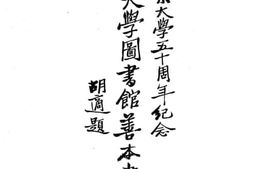 大學五十周年紀念
大學圖書館善本
胡適題